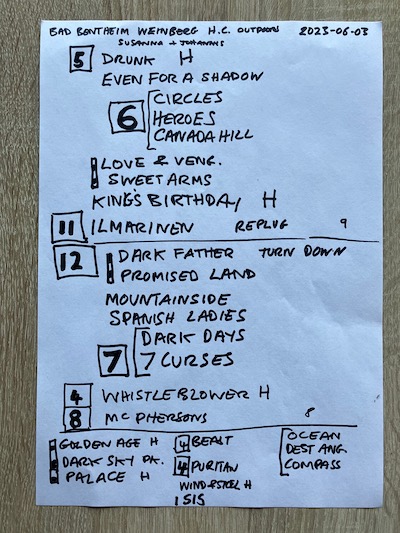 BAD BENTHEIM WEINBERG H.C. OUTDOORS 2023-06-03
SUSANNA + JOHANNIS
5 DRUNK H
EVEN FOR A SHADOW
CIRCLES
6 HEROES
CANADA HILL
LOVE & VENG.
SWEET ARMS
KING'S BIRTHDAY H
11 ILMARINEN REPLUG 9
12 DARK FATHER TURN DOWN
PROMISED LAND
MOUNTAINSIDE
SPANISH LADIES
DARK DAYS
7 7 CURSES
4 WHISTLEBLOWER H
8 MCPHERSONS 8
GOLDEN AGE H 4 BEAST OCEAN
DARK SKY PK. 4 PURITAN DEST ANG.
PALACE H WIND & STEEL H COMPASS
ISIS